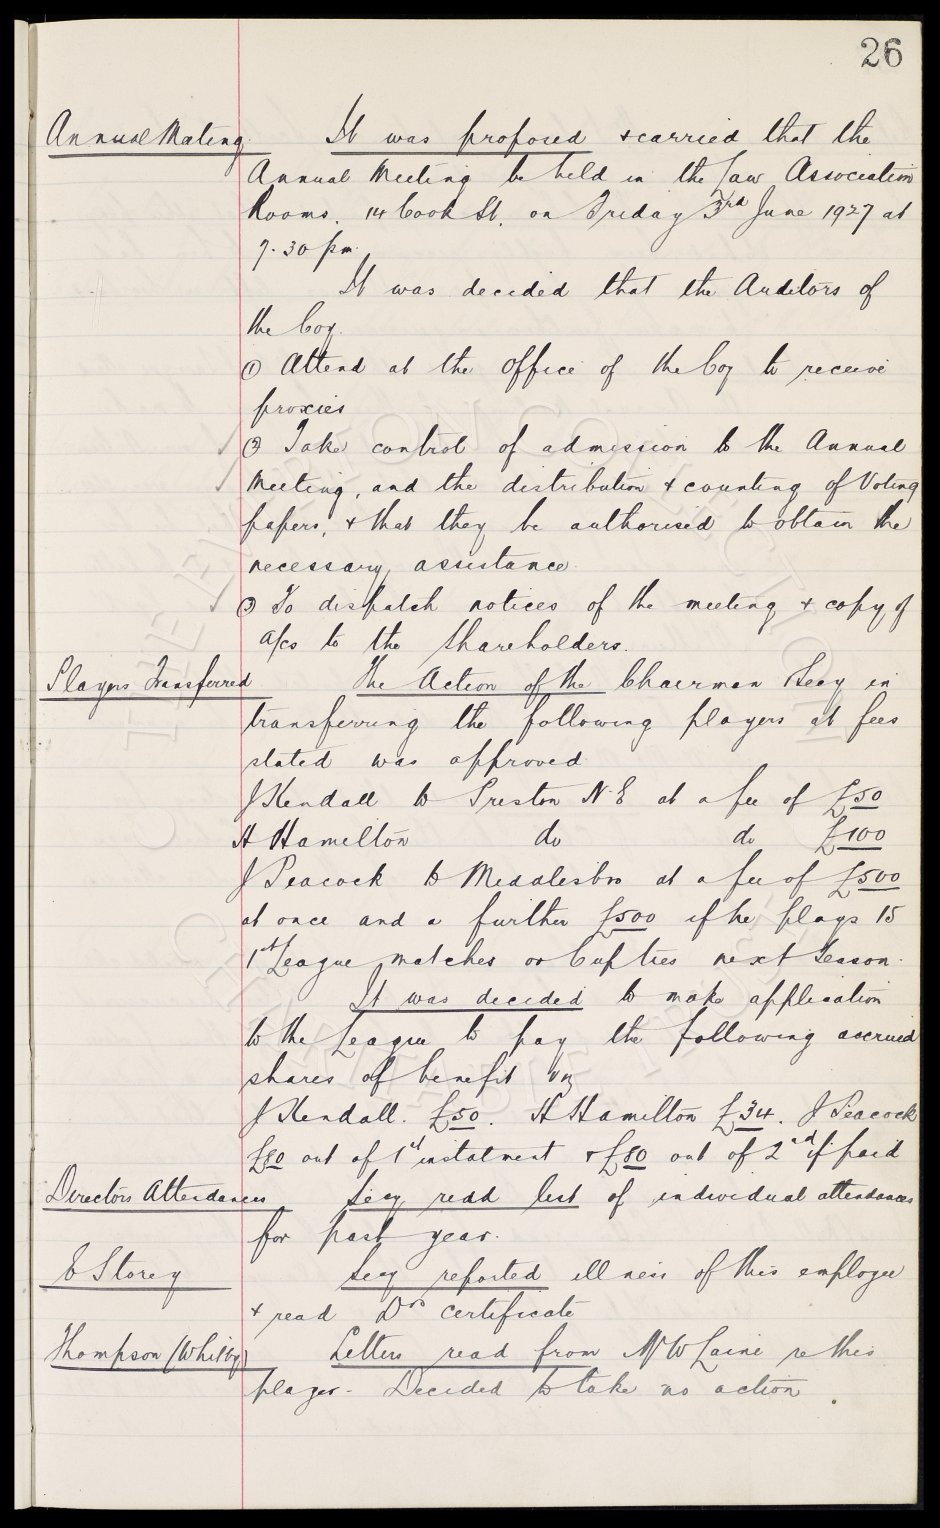 26
Annual Meeting. It was proposed & carried that the
Annual Meeting be held in the Law Association
Rooms, 14 Cook St, on Friday 3rd June 1927 at
7.30 pm.
It was decided that the Auditors of
the Coy.
① Attend at the office of the Coy to receive
proxies
② Take control of admission to the Annual
Meeting, and the distribution & counting of Voting
papers, & that they be authorised to obtain the
necessary assistance.
③ To dispatch notices of the meeting & copy of
a/cs to the shareholders.
Players Transferred The Action of the Chairman Secy in
transferring the following players at fees
stated was approved
J Kendall to Preston N.E at a fee of £50
H Hamilton do do £100
J Peacock to Middlesbro at a fee of £500
at once and a further £500 if he plays 15
1st League matches or Cup ties next Season.
It was decided to make application
to the League to pay the following accrued
shares of benefit viz
J Kendall. £50. H Hamilton £34. J Peacock
£80 out of 1st instalment & £80 out of 2nd if paid
Directors Attendances Secy read list of individual attendances
for past year.
E Storey Secy reported illness of this employee
& read Drs certificate
Thompson (Whitby) Letters read from W Laine re this
player - Decided to take no action.
THE EVERTON
FOOTBALL
COLLECTION
CHARITABLE TRUST